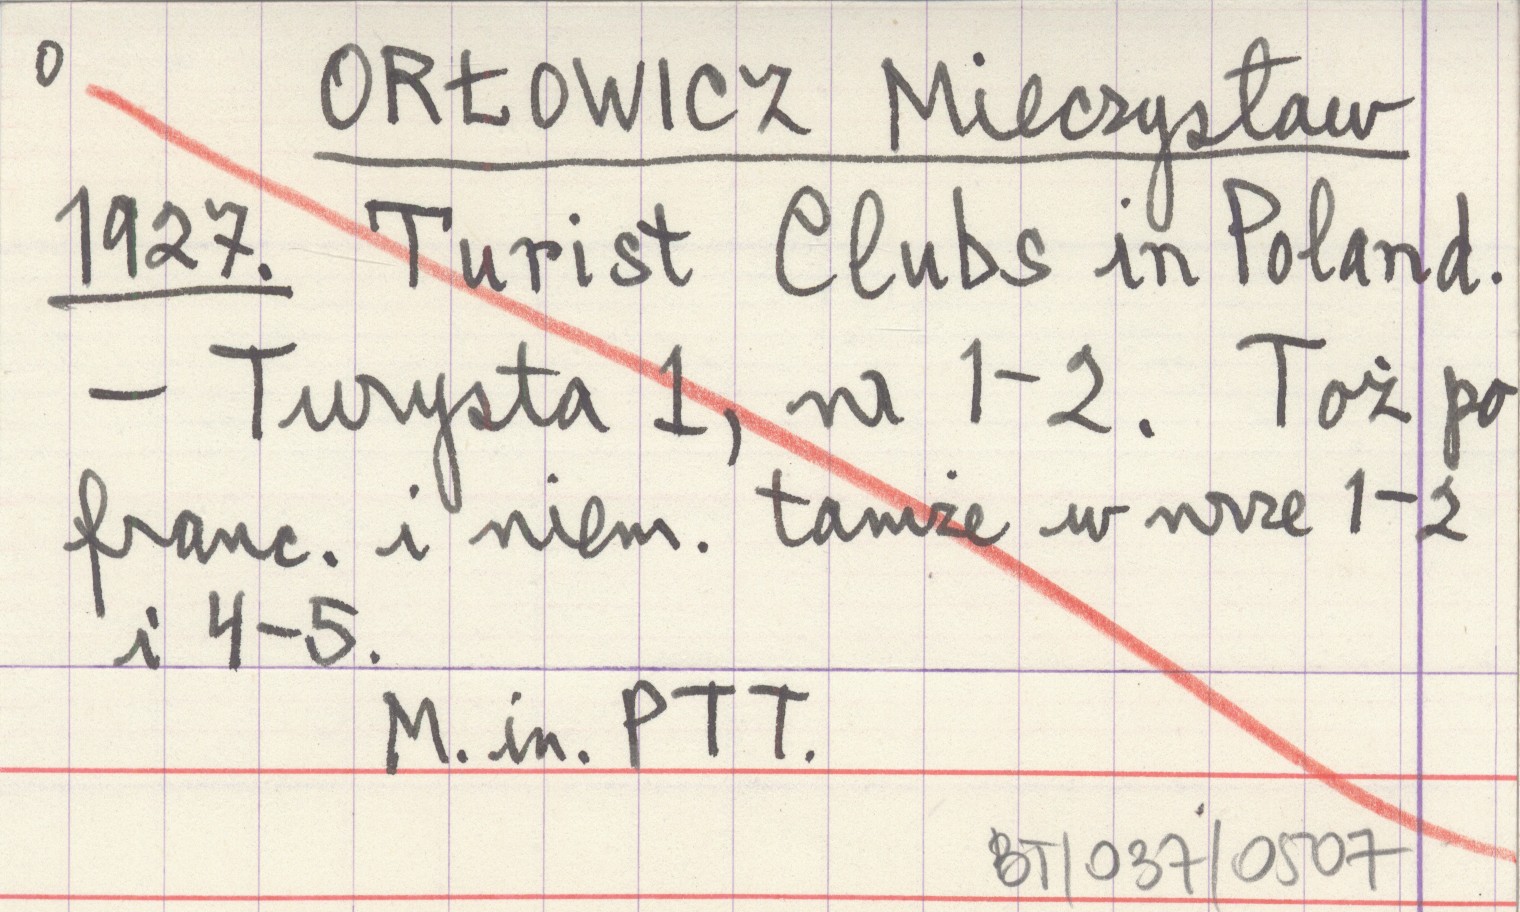 O
ORŁOWICZ Mieczysław
1927. Turist Clubs in Poland.
– Turysta 1, nr 1–2. Toż po
franc. i niem. tamże w nrze 1–2
i 4–5.
M. in. PTT.
BT/037/0507